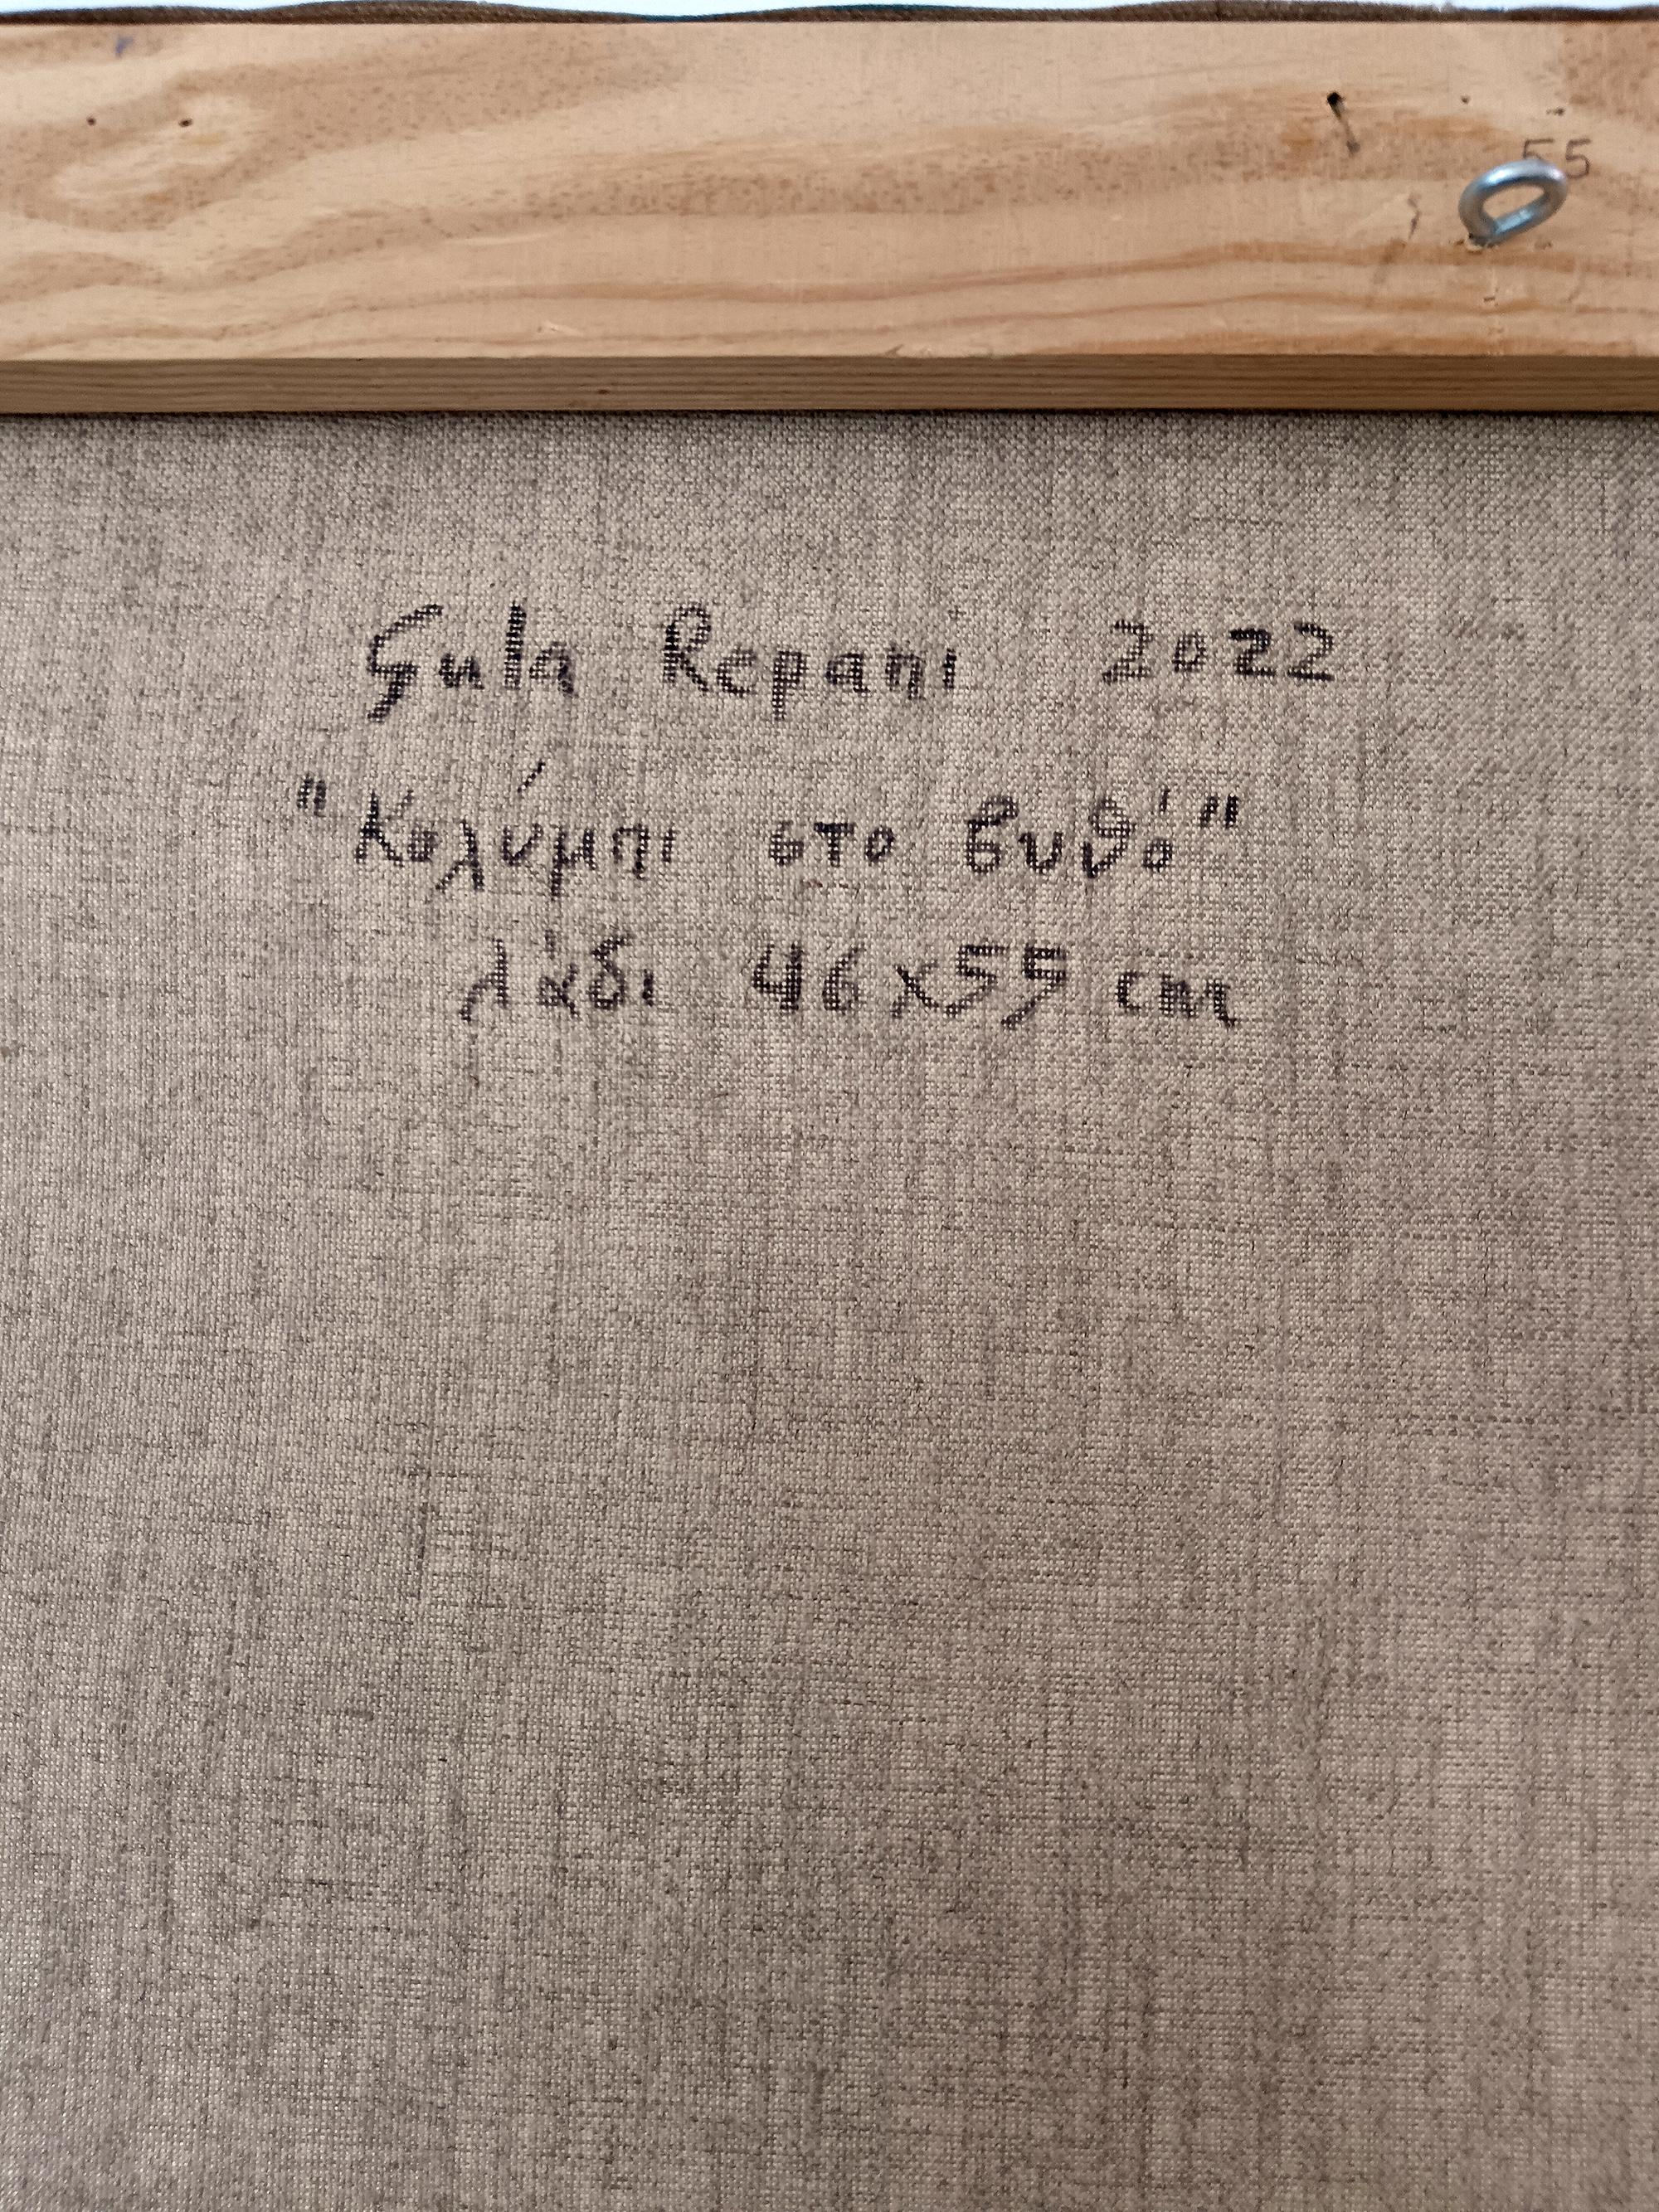 55
Gula Repani 2022
"Κολύμπι στο βυθό"
λάδι 46x55 cm